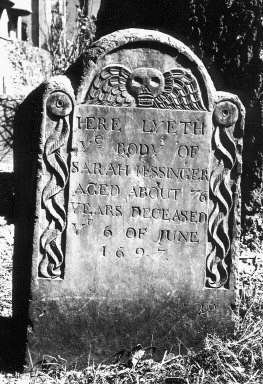 HERE LYETH
Yᵉ BODY OF
SARAH LESSINGER
AGED ABOUT 76
YEARS DECEASED
Yᵉ 6 OF JUNE
1697